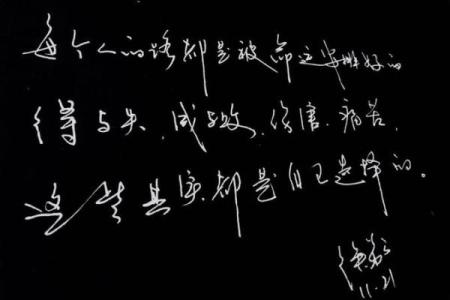 每个人的路都是被命运安排好的
得与失、成与败、伤害、病苦、
这些其实都是自己选择的。
11.21